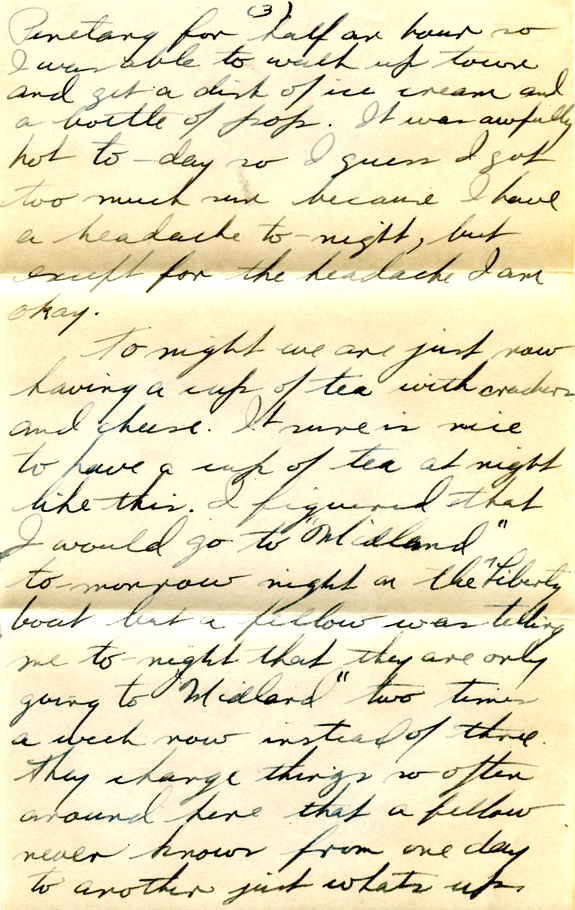 (3)
Penetang for half an hour so
I was able to walk up town
and get a dish of ice cream and
a bottle of pop. It was awfully
hot to-day so I guess I got
too much sun because I have
a headache to-night, but
except for the headache I am
okay.
To night we are just now
having a cup of tea with crackers
and cheese. It sure is nice
to have a cup of tea at night
like this. I figuered that
I would go to "Midland"
to-morrow night on the "Liberty
boat but a fellow was telling
me to-night that they are only
going to "Midland" two times
a week now instead of three.
They change things so often
around here that a fellow
never knows from one day
to another just whats up.